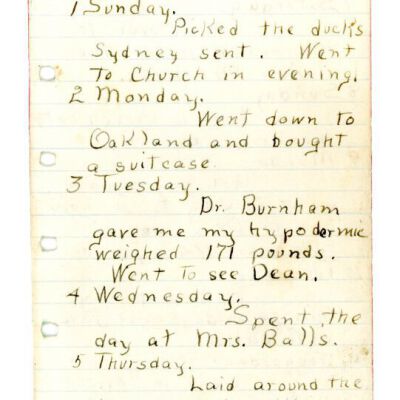 1 Sunday.
Picked the ducks
Sydney sent. Went
To Church in evening.
2 Monday.
Went down to
Oakland and bought
a suitcase
3 Tuesday.
Dr. Burnham
gave me my hypodermic
weighed 171 pounds.
Went To see Dean.
4 Wednesday.
Spent the
day at Mrs. Balls.
5 Thursday.
Laid around the